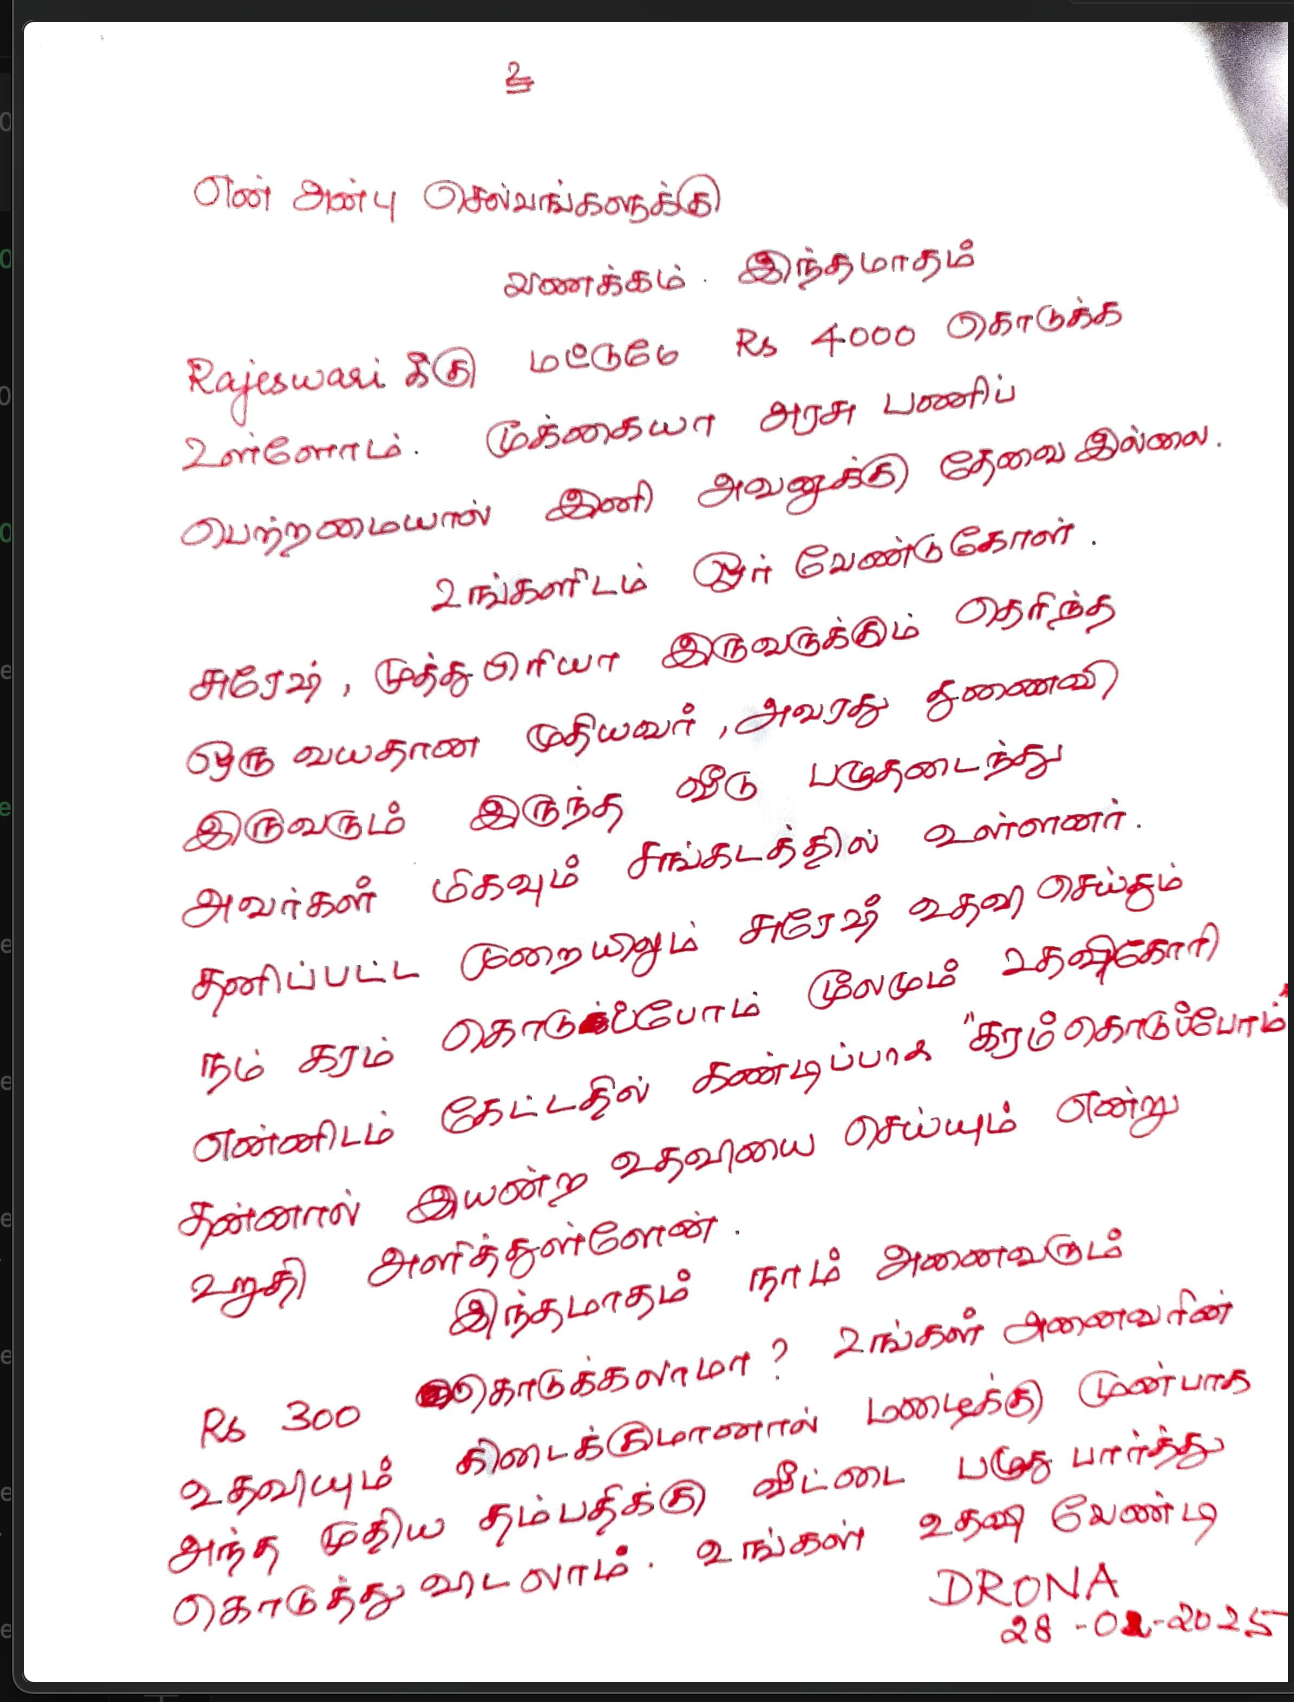 2
என் அன்பு செல்வங்களுக்கு
வணக்கம். இந்தமாதம்
Rajeswari க்கு மட்டுமே Rs 4000 கொடுக்க
உள்ளோம். முக்கையா அரசு பணிப்
பெற்றமையால் இனி அவனுக்கு தேவை இல்லை.
உங்களிடம் ஓர் வேண்டுகோள்.
சுரேஷ், முத்து பிரியா இருவருக்கும் தெரிந்த
ஒரு வயதான முதியவர், அவரது துணைவி
இருவரும் இருந்த வீடு பழுதடைந்து
அவர்கள் மிகவும் சங்கடத்தில் உள்ளனர்.
தனிப்பட்ட முறையிலும் சுரேஷ் உதவி செய்தும்
நம் கரம் கொடுப்போம் மூலமும் உதவிகோரி
என்னிடம் கேட்டதில் கண்டிப்பாக "கரம் கொடுப்போம்"
தன்னால் இயன்ற உதவியை செய்யும் என்று
உறுதி அளித்துள்ளேன்.
இந்தமாதம் நாம் அனைவரும்
Rs 300 கொடுக்கலாமா? உங்கள் அனைவரின்
உதவியும் கிடைக்குமானால் மழைக்கு முன்பாக
அந்த முதிய தம்பதிக்கு வீட்டை பழுது பார்த்து
கொடுத்து விடலாம். உங்கள் உதவி வேண்டி
DRONA
28-02-2025